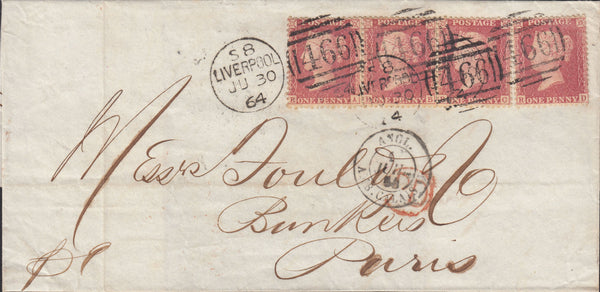 POSTAGE POSTAGE POSTAGE POSTAGE
466 466 466 466
ONE PENNY ONE PENNY ONE PENNY ONE PENNY
S8
LIVERPOOL
JU 30
64
S8
LIVERPOOL
ANGL.
Messrs Foul & Co
Bunkers
Paris